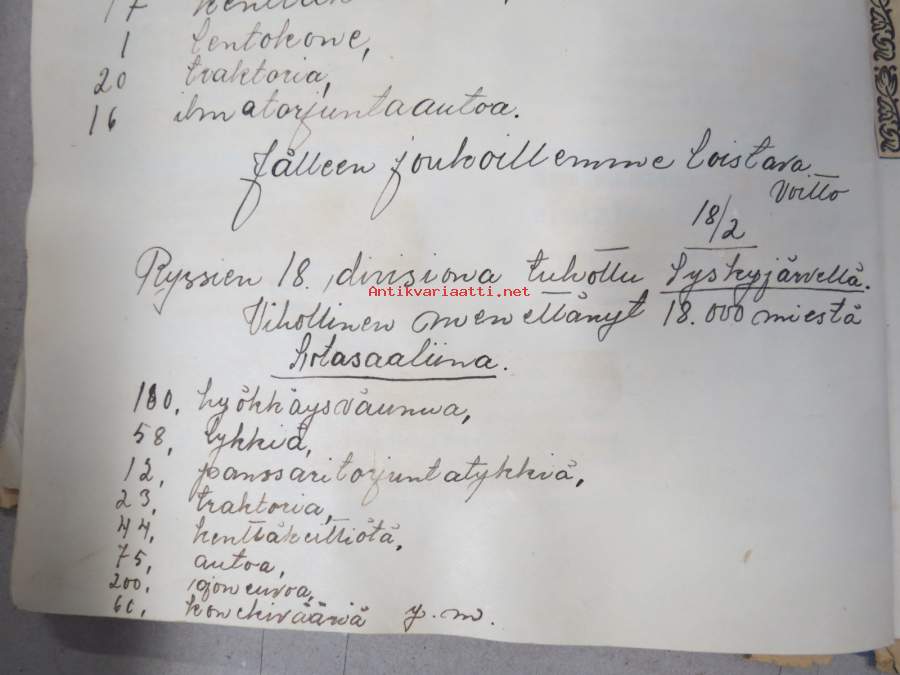 17
1 lentokone,
20 traktoria,
16 ilmatorjuntaautoa.
Jälleen joukoillemme loistava
Voitto
18/2
Ryssien 18. divisiona tuhottu Syskyjärvellä.
Antikvariaatti.net
Vihollinen menettänyt 18.000 miestä
Sotasaaliina.
180, hyökkäysvaunua,
58, tykkiä,
12, panssaritorjuntatykkiä,
23, traktoria,
44, kenttäkeittiötä,
75, autoa,
200, ajoneuvoa,
60, konekivääriä y.m.